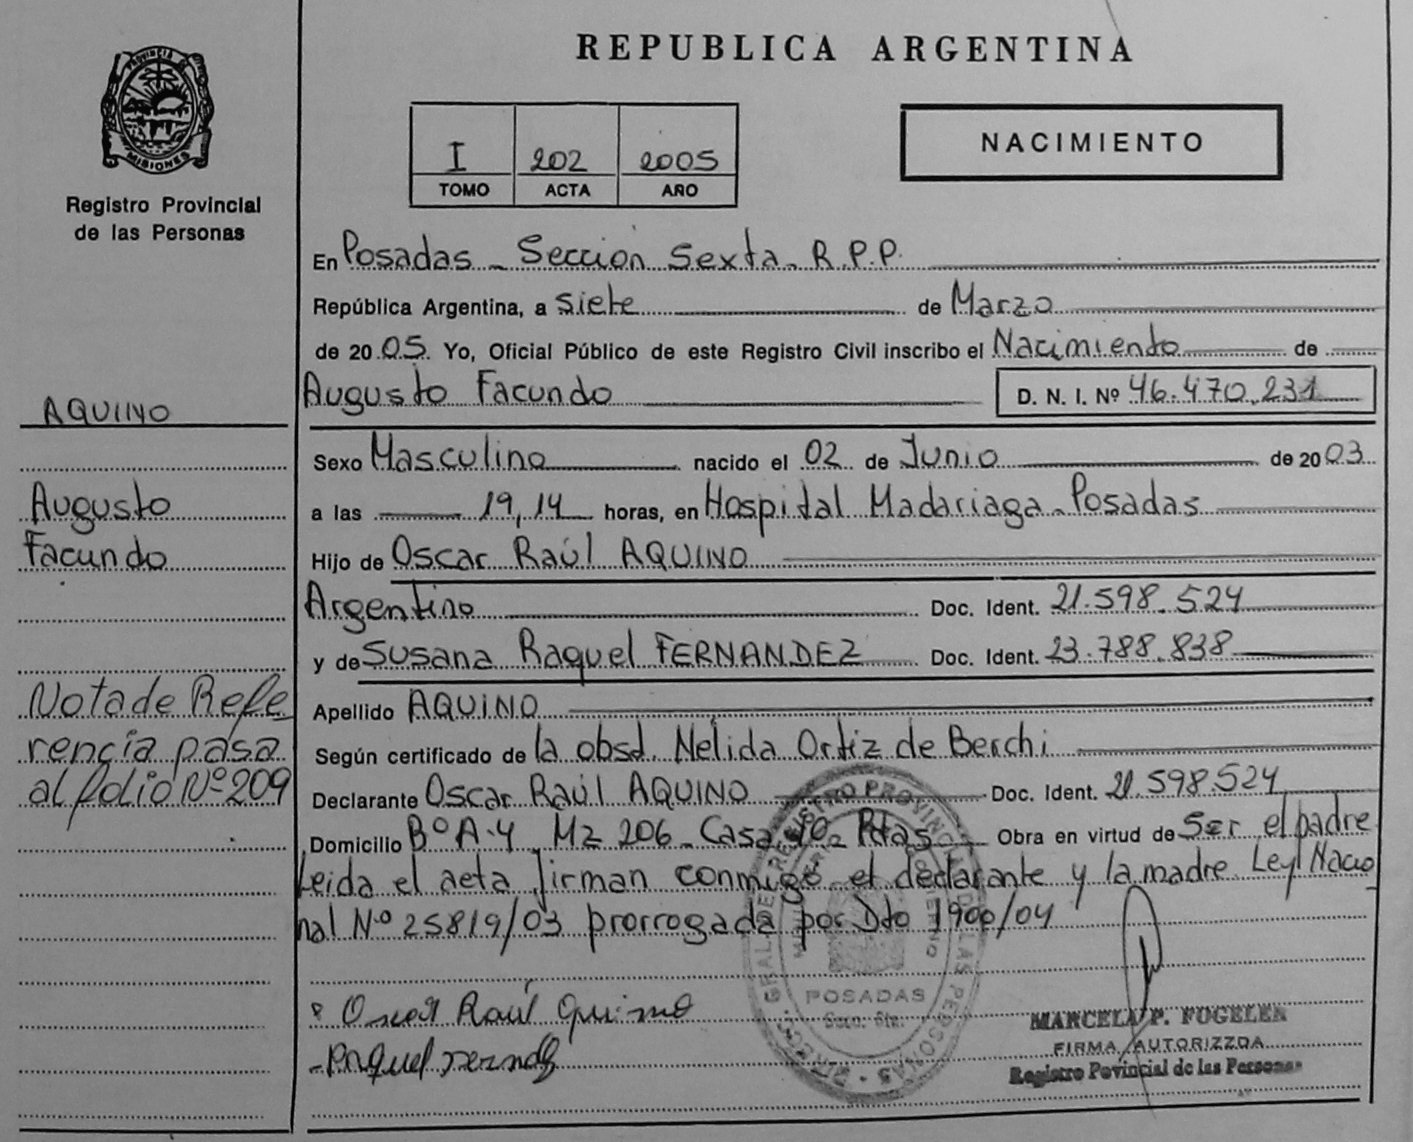 REPUBLICA ARGENTINA
PROVINCIA DE
MISIONES
Registro Provincial
de las Personas
I 202 2005
TOMO ACTA AÑO
NACIMIENTO
En Posadas - Sección Sexta - R.P.P.
República Argentina, a siete de Marzo
de 2005. Yo, Oficial Público de este Registro Civil inscribo el Nacimiento de
Augusto Facundo D. N. I. Nº 46.470.231
AQUINO
Sexo Masculino nacido el 02 de Junio de 2003
Augusto
a las 19,14 horas, en Hospital Madariaga - Posadas
Facundo
Hijo de Oscar Raúl AQUINO
Argentino Doc. Ident. 21.598.524
y de Susana Raquel FERNANDEZ Doc. Ident. 23.788.838
Nota de Refe
Apellido AQUINO
rencia pasa
Según certificado de la obsd. Nélida Ortiz de Berchi
al folio Nº 209
Declarante Oscar Raúl AQUINO Doc. Ident. 21.598.524
Domicilio Bº A-4 Mz 206 - Casa 10 - Pdas Obra en virtud de ser el padre
Leida el acta firman conmigo el declarante y la madre Ley Nacio
nal Nº 25819/03 prorrogada por Dto 1900/04
POSADAS
Secc. 6ta.
Oscar Raúl Aquino
Raquel Fernandez
MARCELA P. FUGELER
FIRMA AUTORIZZDA
Registro Povincial de las Personas